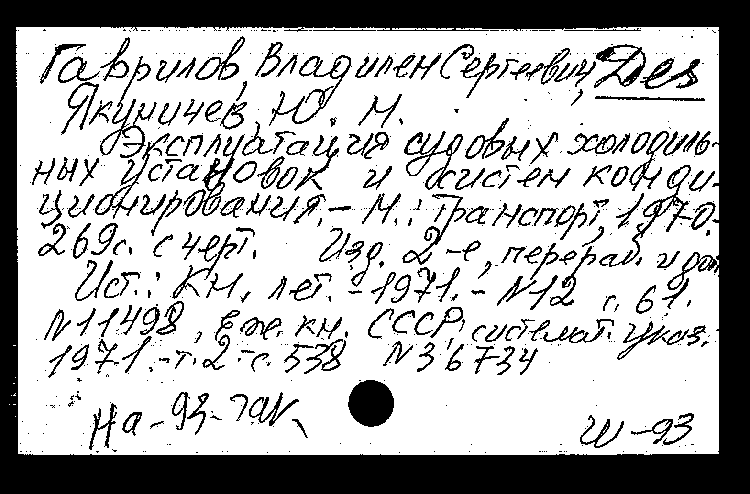 Гаврилов, Владилен Сергеевич, Des
Якуничев, Ю. М.
Эксплуатация судовых холодиль-
ных установок и систем конди-
ционирования. - М.: Транспорт, 1970.-
269с. с черт. Изд. 2-е, перераб. и доп
Ист.: Кн. лет. - 1971. - N12 с. 61.
N11498, Еже. кн. СССР, системат. указ.
1971.-т.2-с. 538 N36734
На-93-
Ш-93